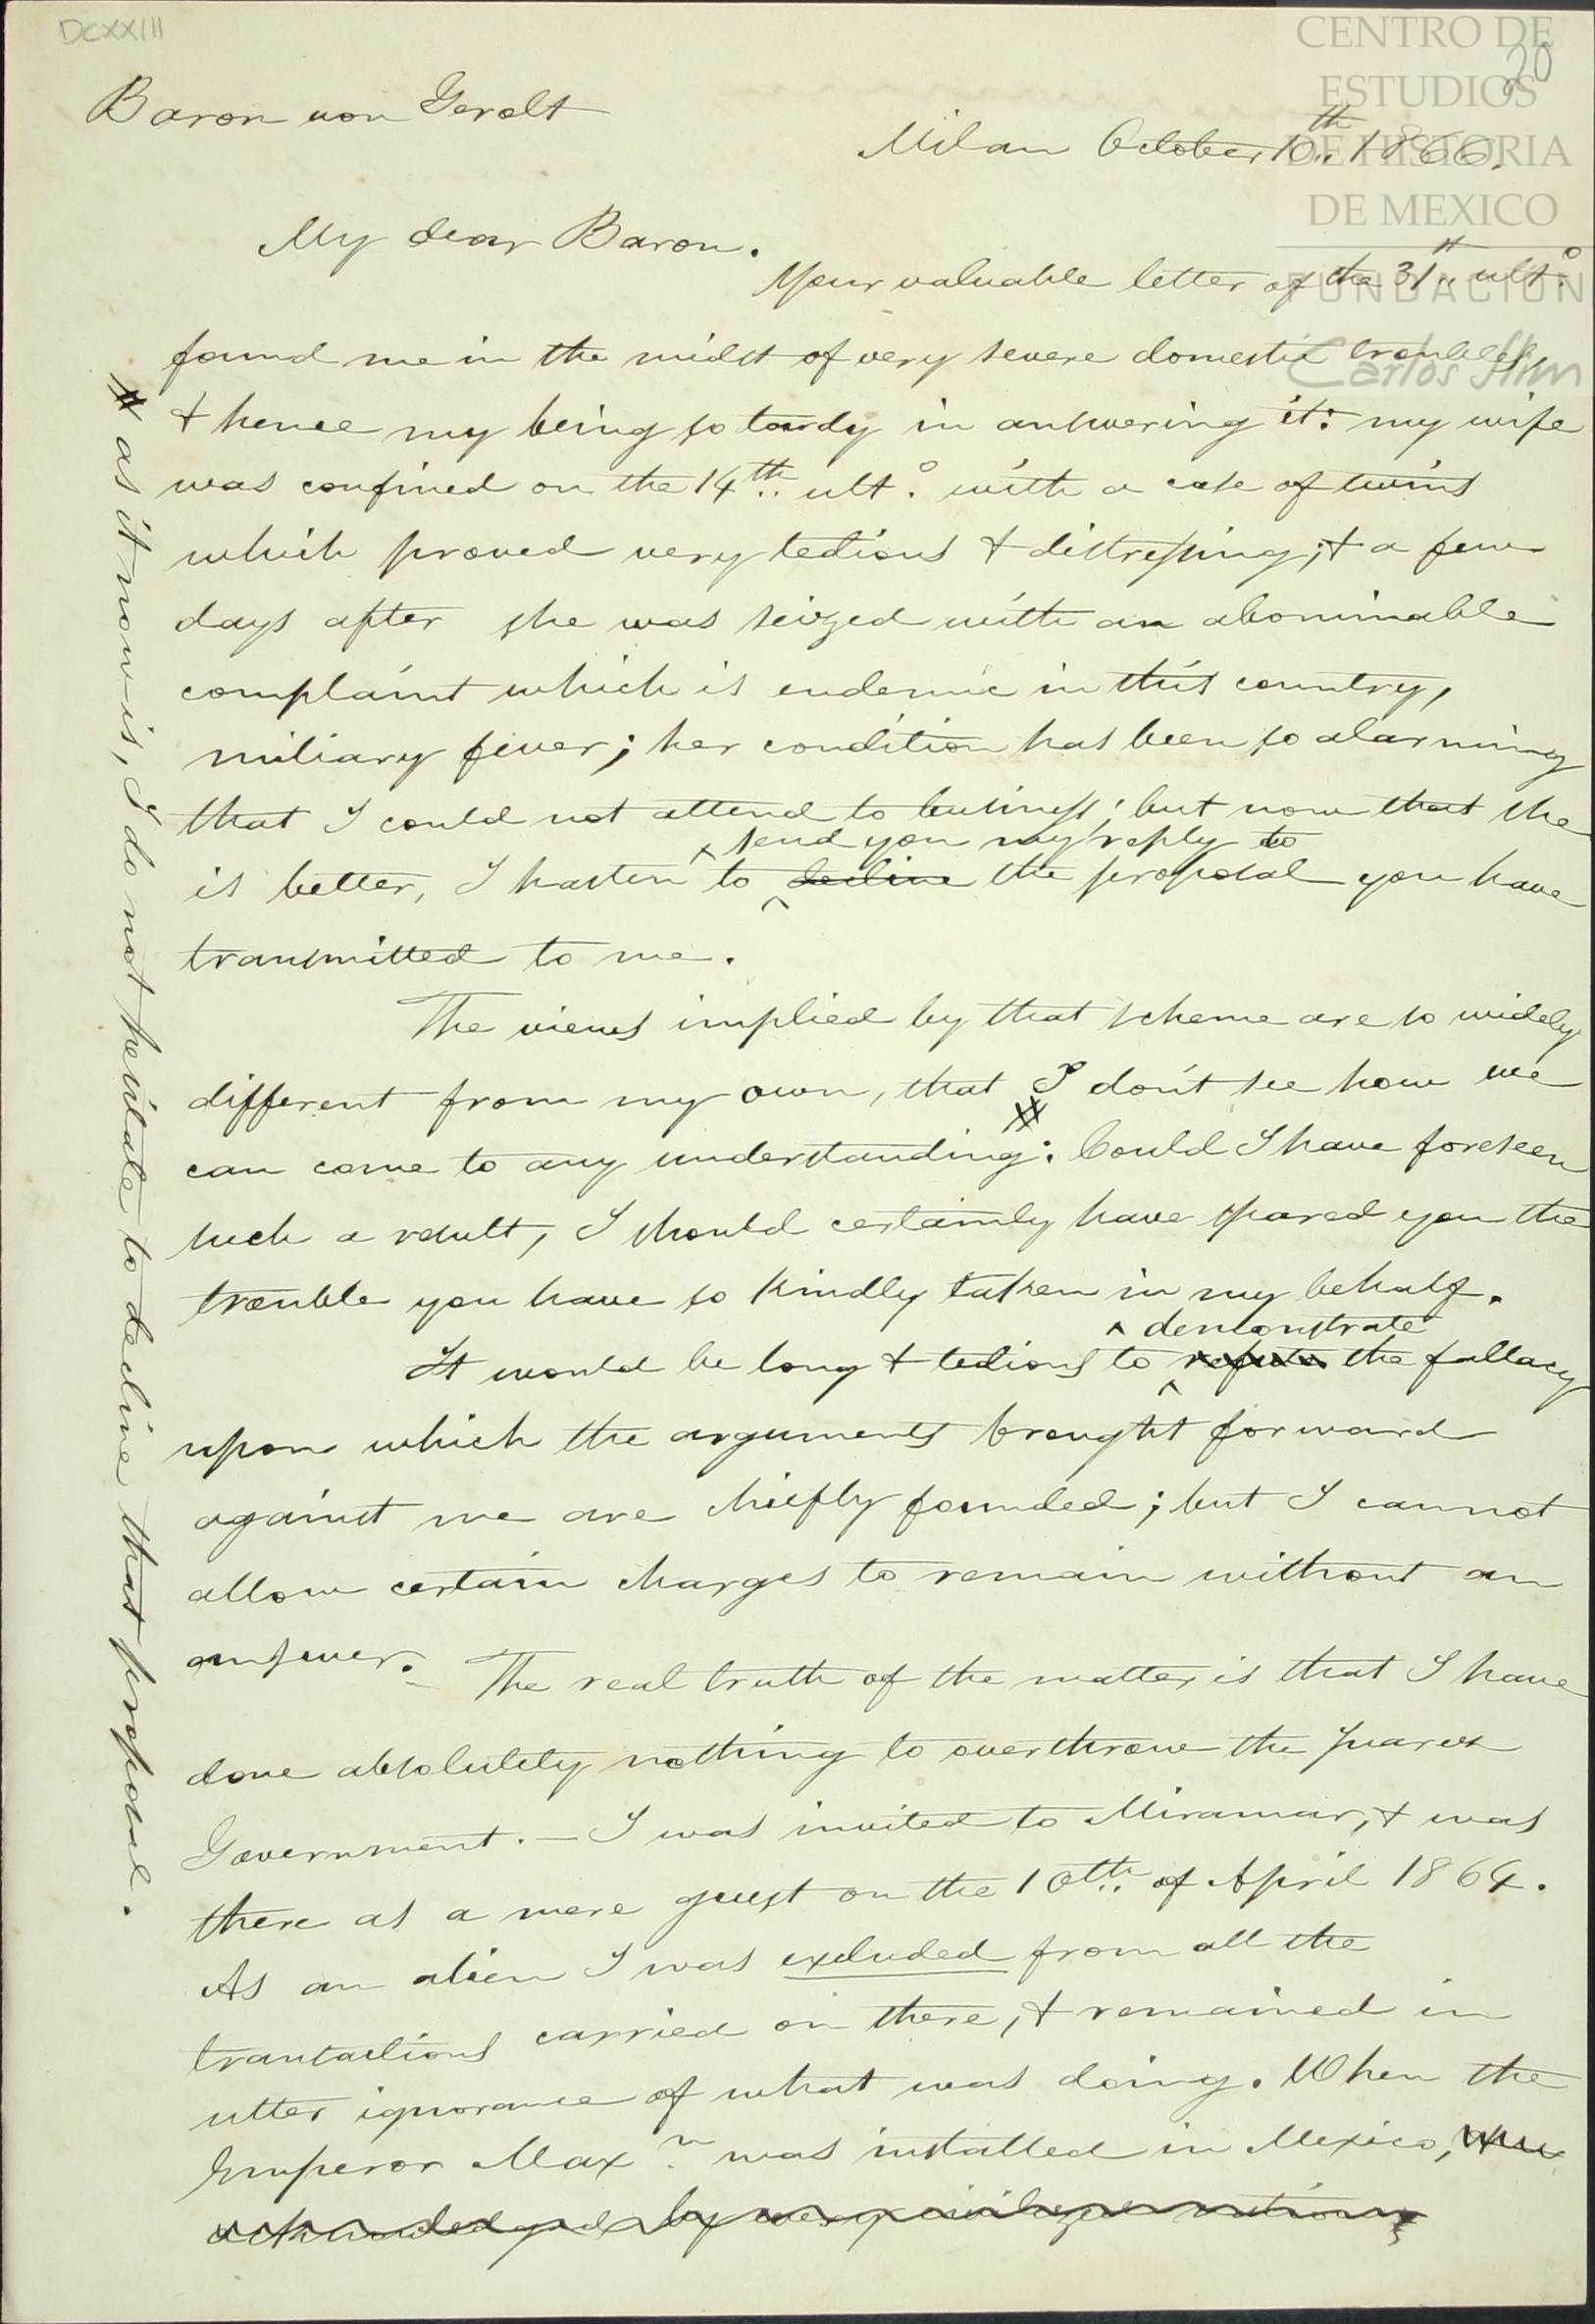 DCXXIII
CENTRO DE
ESTUDIOS
DE HISTORIA
DE MEXICO
FUNDACIÓN
Carlos Slim
20
Baron von Gerolt
Milan October 10th 1866.
My dear Baron.
Your valuable letter of the 31st ulto
found me in the midst of very severe domestic troubles,
& hence my being so tardy in answering it: my wife
was confined on the 14th ulto with a case of twins
which proved very tedious & distressing; & a few
days after she was seized with an abominable
complaint which is endemic in this country,
miliary fever; her condition has been so alarming
that I could not attend to business; but now that she
send you my reply to
is better, I hasten to decline the proposal you have
transmitted to me.
The views implied by that scheme are so widely
different from my own, that I don't see how we
can come to any understanding #: Could I have foreseen
such a result, I should certainly have spared you the
trouble you have so kindly taken in my behalf.
demonstrate
It would be long & tedious to refute the fallacy
upon which the arguments brought forward
against me are chiefly founded; but I cannot
allow certain charges to remain without an
answer. – The real truth of the matter is that I have
done absolutely nothing to overthrow the Juarez
Government. – I was invited to Miramar, & was
there as a mere guest on the 10th of April 1864.
As an alien I was excluded from all the
transactions carried on there, & remained in
utter ignorance of what was doing. When the
Emperor Maxn was installed in Mexico,
acknowledged by every civilized nation,
# as it now is, I do not hesitate to decline that proposal.